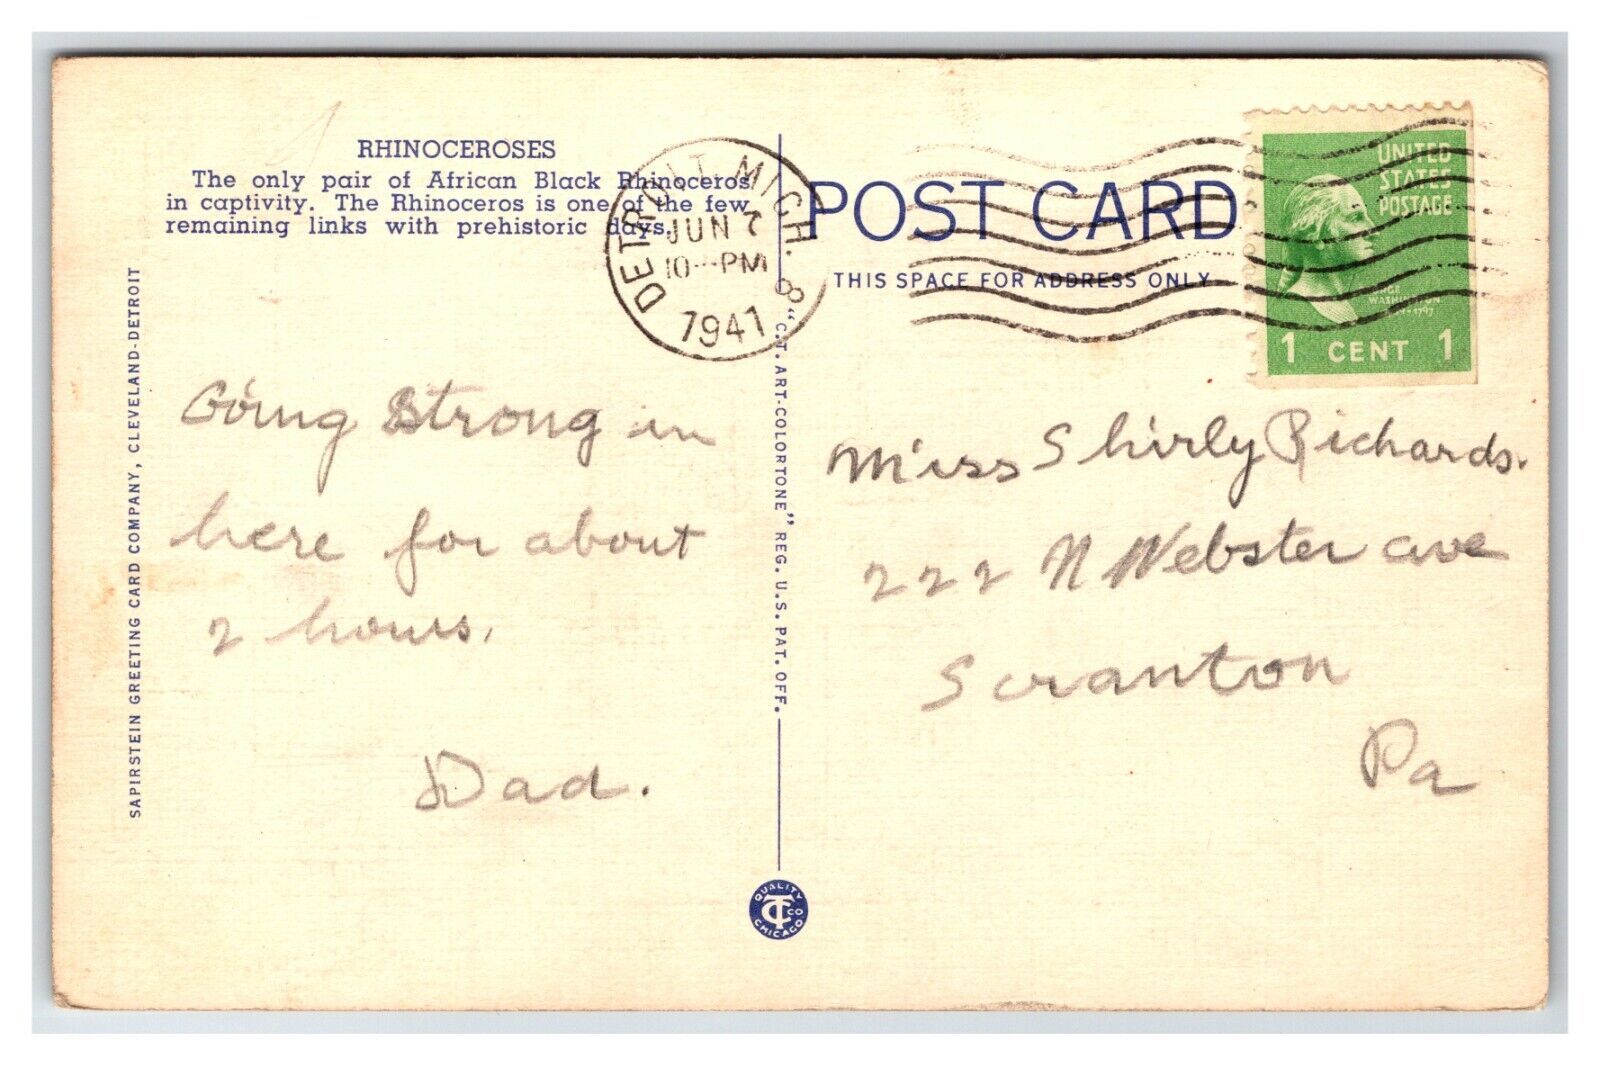 RHINOCEROSES
The only pair of African Black Rhinoceros
in captivity. The Rhinoceros is one of the few
remaining links with prehistoric days.
SAPIRSTEIN GREETING CARD COMPANY, CLEVELAND-DETROIT
Going Strong in
here for about
2 hours.
Dad.
DETROIT, MICH. 8
JUN 7
10-PM
1941
"C.T. ART-COLORTONE" REG. U.S. PAT. OFF.
QUALITY
CT CO
CHICAGO
POST CARD
THIS SPACE FOR ADDRESS ONLY
UNITED
STATES
POSTAGE
WASHINGTON
1 CENT 1
Miss Shirly Richards.
222 N Webster ave
Scranton
Pa